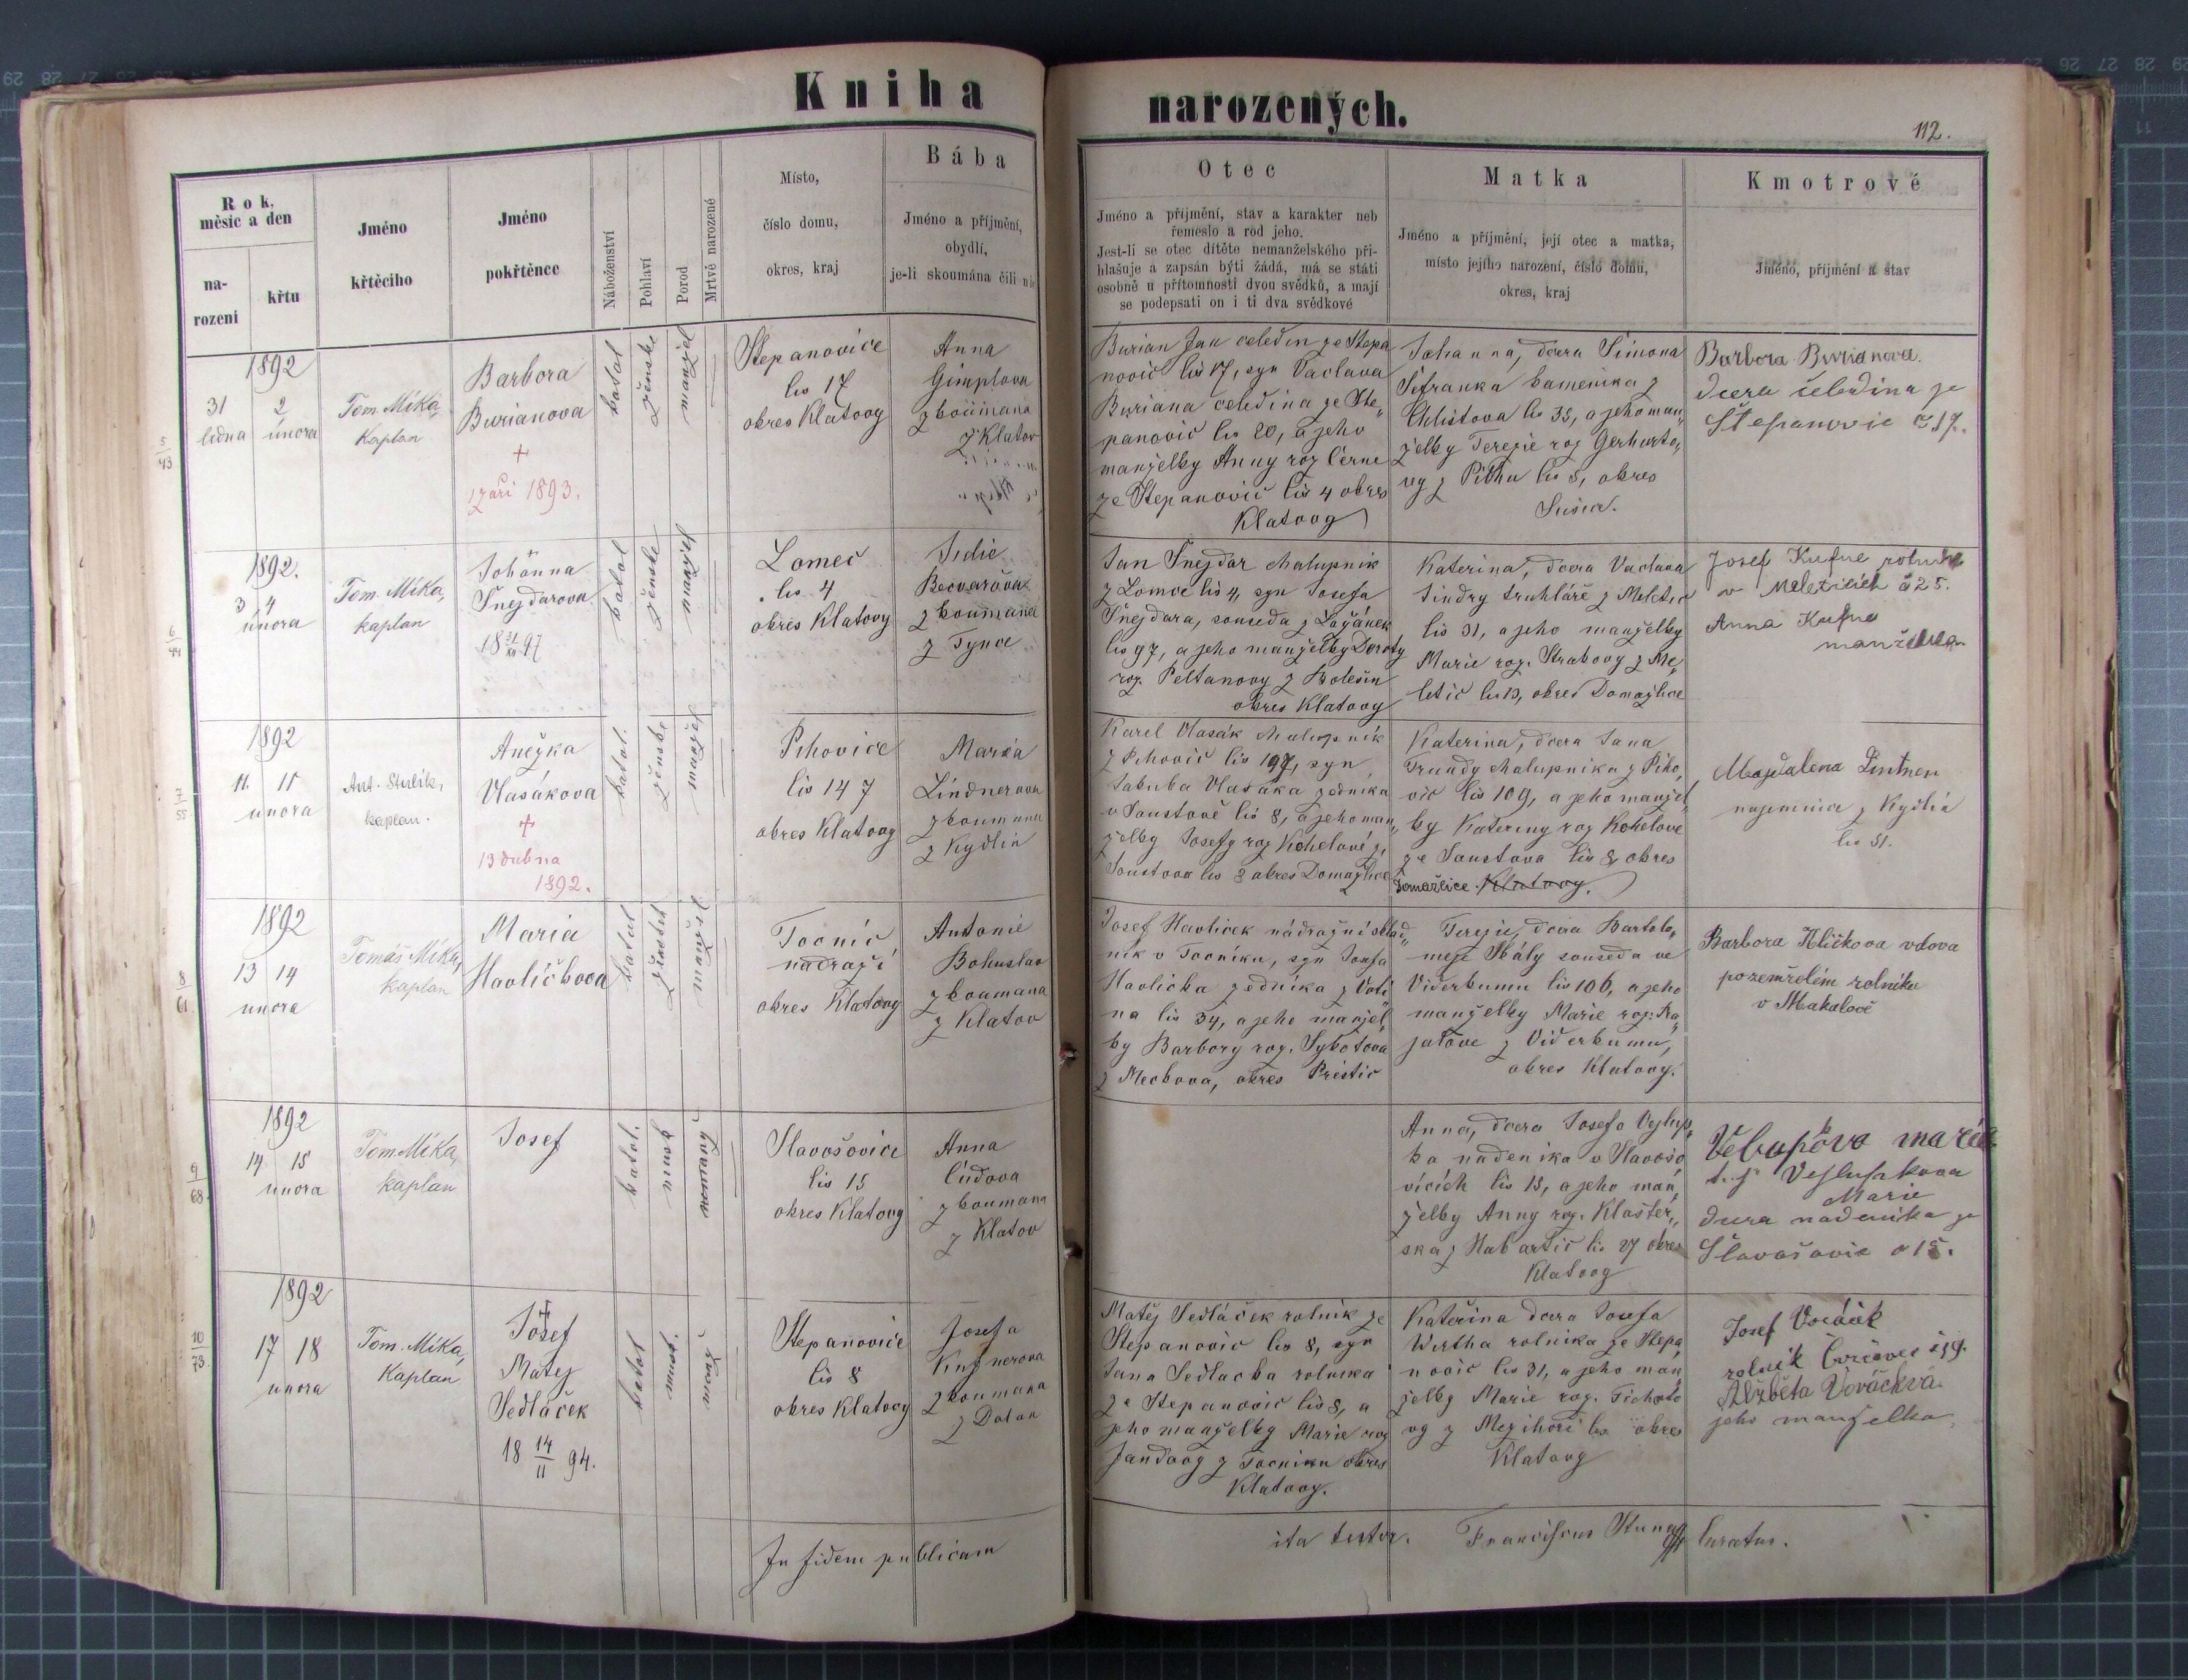 Kniha narozených.
112.
Rok, měsíc a den
na-
rození
křtu
Jméno
křtěcího
Jméno
pokřtěnce
Náboženství
Pohlaví
Porod
Mrtvě narozené
Místo,
číslo domu,
okres, kraj
Bába
Jméno a příjmění,
obydlí,
je-li skoumána čili
Otec
Jméno a příjmění, stav a karakter neb
řemeslo a rod jeho.
Jest-li se otec dítěte nemanželského při-
hlašuje a zapsán býti žádá, má se státi
osobně u přítomnosti dvou svědků, a mají
se podepsati on i ti dva svědkové
Matka
Jméno a příjmění, její otec a matka,
místo jejího narození, číslo domu,
okres, kraj
Kmotrové
Jméno, příjmění a stav
5
43
1892
31 ledna
2 února
Tom. Míka,
Kaplan
Barbora
Burianova
+
1 září 1893.
katol
ženské
manžel
Štepanovice
čis 17
okres Klatovy
Anna
Gimplova
zkoumana
z Klatov
Burian Jan čeledin ze Štepa
novic čis 17, syn Vaclava
Buriana čeledina ze Šte„
panovic čis 20, a jeho
manželky Anny roz Černe
ze Štepanovic čis 4 okres
Klatovy
Johanna, dcera Šimona
kamenika z
Chlistova čis 35, a jeho man„
želky Terezie roz
vy z čis 5, okres
Sušice.
Barbora Burianova.
dcera čeledina ze
Štepanovic č 17.
6
44
1892.
3 4
února
Tom. Míka,
kaplan
Johanna
Šnejdarova
18 31/XII 97
katol
ženske
manžel
Lomec
čis. 4
okres Klatovy
Julie
Becvařova
zkoumana
z Tynce
Jan Šnejdar chalupnik
z Lomce čis 4, syn Josefa
Šnejdara, souseda z Ložánek
čis 97, a jeho manželky Doroty
roz. Peltanovy z Bolešin
okres Klatovy
Katerina, dcera Vaclava
Jindry truhláře z Meletic
čis 31, a jeho manželky
Marie roz. Strakovy z Me„
letic čis 13, okres Domažlice
Josef Kufne rolnik
v Meleticích č 25.
Anna Kufne
manželka
7
55
1892
11. 11
unora
Ant.
kaplan.
Anežka
Vlasákova
+
13 dubna
1892.
katol.
ženske
manžel
Pihovice
čis 147
okres Klatovy
Maria
Lindnerova
zkoumana
z Kydlin
Karel Vlasák chalupnik
z Pihovic čis 197, syn
Jakuba Vlasáka zednika
v Soustově čis 8, a jeho man„
želky Josefy roz Kohelové ze
Soustova čis 8 okres Domažlice
Katerina, dcera Jana
Trundy chalupnika z Piho„
vic čis 109, a jeho manžel
ky Kateriny roz Kohelove
ze Soustova čis 8 okres
Domažlice. Klatovy.
Magdalena Lintner
najemnice z Kydlin
čis 31.
8
61
1892
13 14
unora
Tomáš Míka,
kaplan
Maria
Havličkova
katol
ženské
manžel
Točnic
nadraží
okres Klatovy
Antonie
Bohuslav
zkoumana
z Klatov
Josef Havliček nádražní sklad„
nik v Točniku, syn Josefa
Havlička zednika z Voti
na čis 34, a jeho manžel„
ky Barbory roz. Sykotova
z Meckova, okres Přestic
Terezie, dcera Bartolo„
meje Skály souseda ve
Viderkumu čis 106, a jeho
manželky Marie roz. Ra„
jtove z Viderkumu,
okres Klatovy.
Barbora Kličkova vdova
po zemřelém rolniku
v Makalově
9
68
1892
14. 15
unora
Tom Míka,
kaplan
Josef
katol.
musk
nemanž
Slavošovice
čis 15
okres Klatovy
Anna
Čudova
zkoumana
z Klatov
Anna, dcera Josefa Vejlup„
ka nadenika v Slavošo
vicích čis 15, a jeho man„
želky Anny roz. Klášter„
ska z Habartic čis 27 okres
Klatovy
marie
t.j. Vejlupkova
Marie
dcera nadenika ze
Slavošovic č 15.
10
73
1892
17 18
unora
Tom. Míka,
Kaplan
+
Josef
Matej
Sedláček
18 14/11 94.
katol
musk.
manž
Štepanovice
čis 8
okres Klatovy
Josefa
zkoumana
z Dolan
Matěj Sedláček rolník ze
Štepanovic čis 8, syn
Jana Sedlačka rolnika
ze Štepanovic čis 8, a
jeho manželky Marie roz
Jandovy z Točniku okres
Klatovy.
Kateřina dcera Josefa
Wirtha rolnika ze Štepa„
novic čis 31, a jeho man„
želky Marie roz. Tichoto
vy z Mezihoři čis okres
Klatovy
Josef Voráček
rolnik č 9.
Alžběta Voráčková
jeho manželka
In fidem publicam
ita testor. Franciscus curatus.